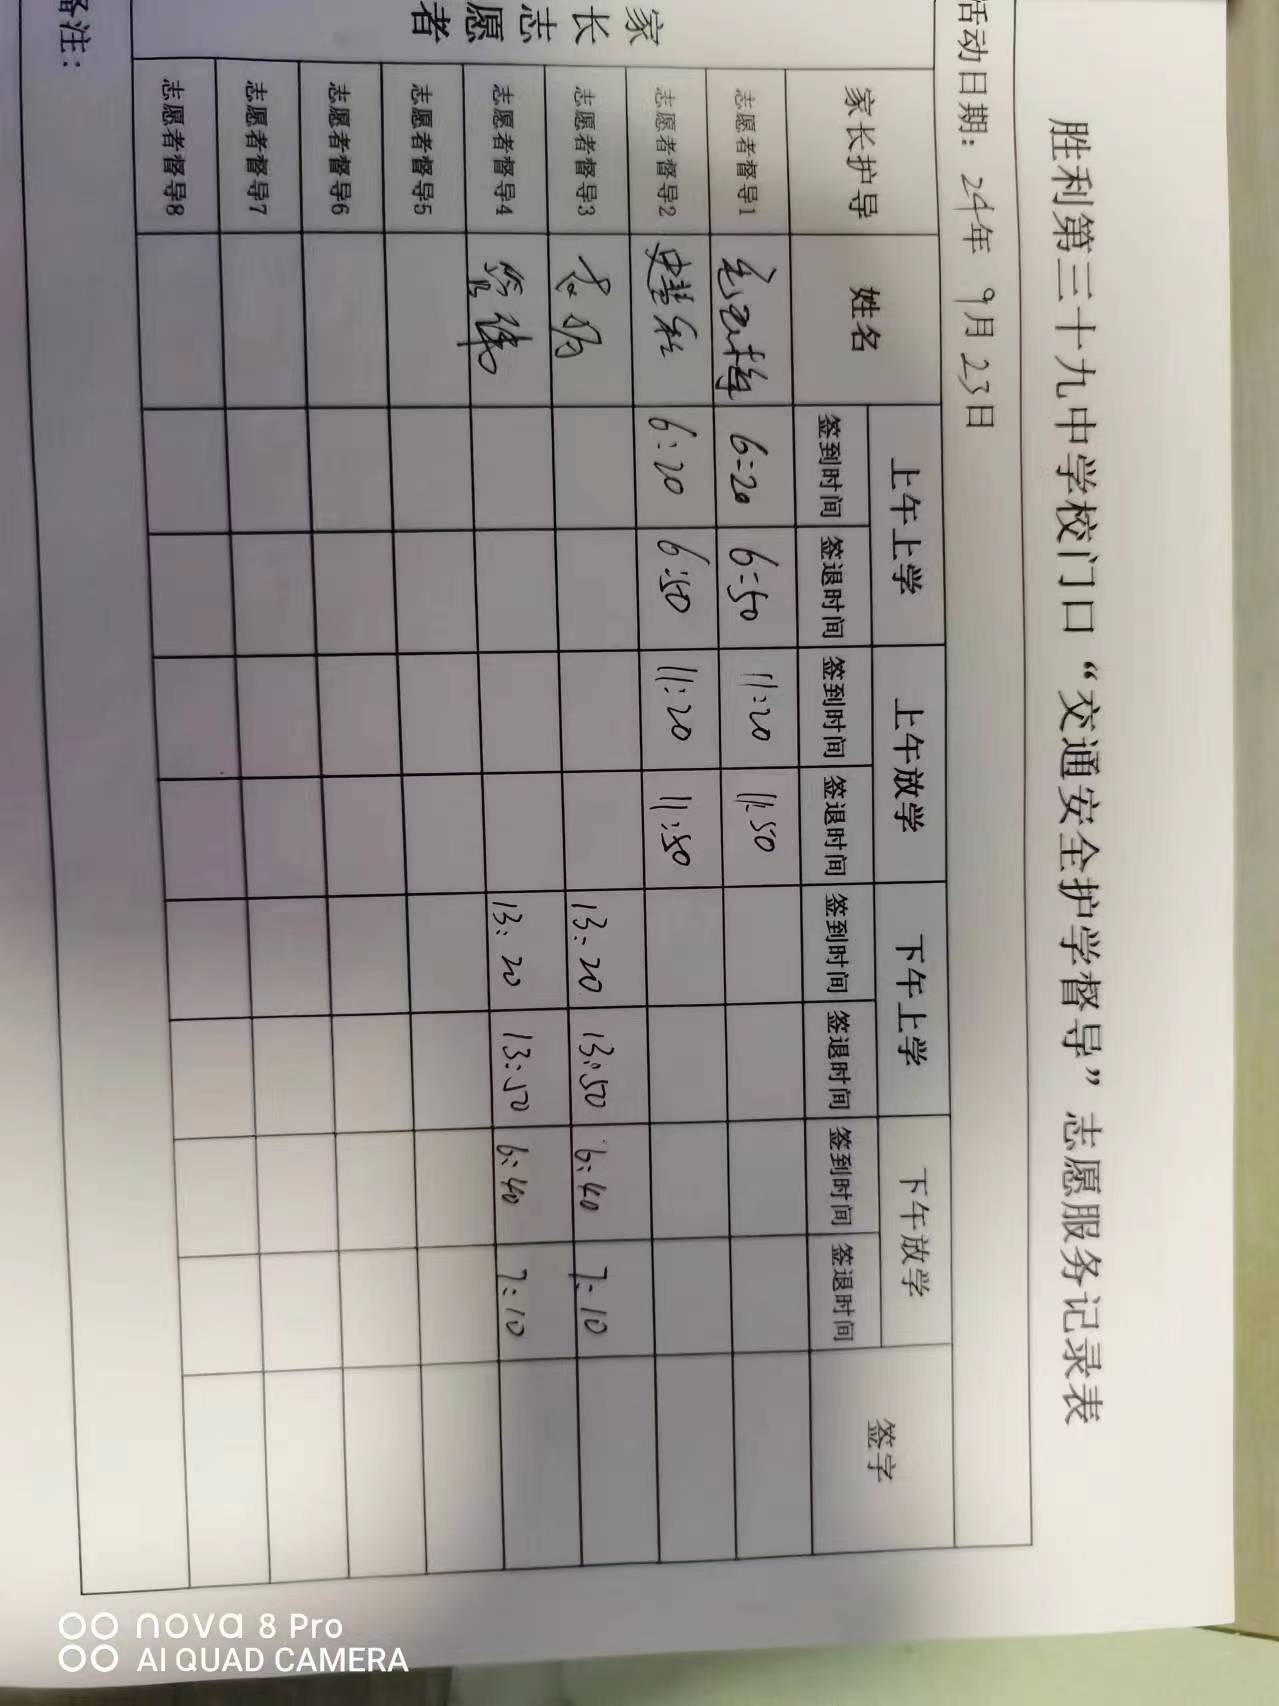 胜利第三十九中学校门口“交通安全护学督导”志愿服务记录表
活动日期：24年 9月23日
家长护导 姓名 上午上学 上午放学 下午上学 下午放学 签字
签到时间 签退时间 签到时间 签退时间 签到时间 签退时间 签到时间 签退时间
家长志愿者
志愿者督导1 6:20 6:50 11:20 11:50
志愿者督导2 6:20 6:50 11:20 11:50
志愿者督导3 13:20 13:50 6:40 7:10
志愿者督导4 13:20 13:50 6:40 7:10
志愿者督导5
志愿者督导6
志愿者督导7
志愿者督导8
备注：
nova 8 Pro
AI QUAD CAMERA